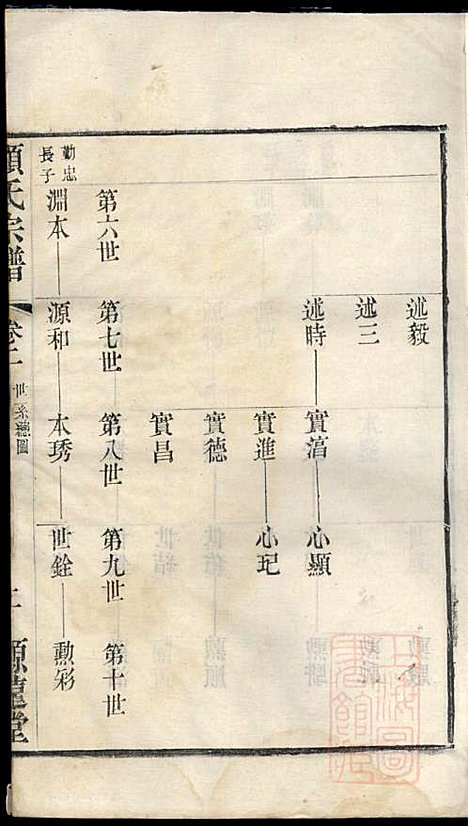 述毅
述三
述時 實滈 心顯
實進 心玘
實德
實昌
第六世 第七世 第八世 第九世 第十世
勤忠長子
淵本 源和 本琇 世銓 勲彩
顧氏宗譜 卷二 世系總圖